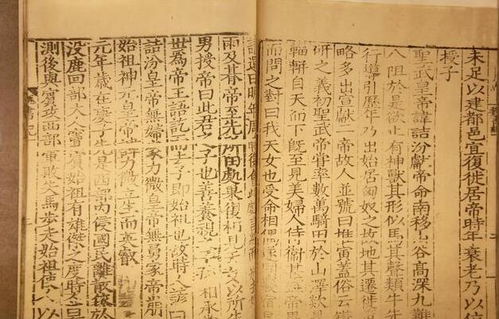 未足以建都邑宜復徙居帝時年衰老乃以位
授子
聖武皇帝諱詰汾獻帝命南移山谷高深九難
八阻於是欲止有神獸其形似馬其聲類牛先
行導引歷年乃出始居匈奴之故地其遷徙
略多出宣獻帝故人並號曰推寅蓋俗云
研之義初聖武帝嘗率數萬騎田於山澤欻見
輜軿自天而下既至見美婦人侍衛甚
而問之對曰我天女也受命相偶
請還曰明年周時復會此處
雨及期帝至先所田處果復相見天女以所生
男授帝曰此君之子也善養視之
世為帝王語訖而去子即始祖也故時人諺曰
詰汾皇帝無婦家力微皇帝無舅家帝崩
始祖神元皇帝諱力微立生而英叡
元年歲在庚子先是西部內侵國民離散依於
沒鹿回部大人竇賓始祖有雄傑之度時人莫
測後與賓攻西部軍敗失馬步走始祖使人